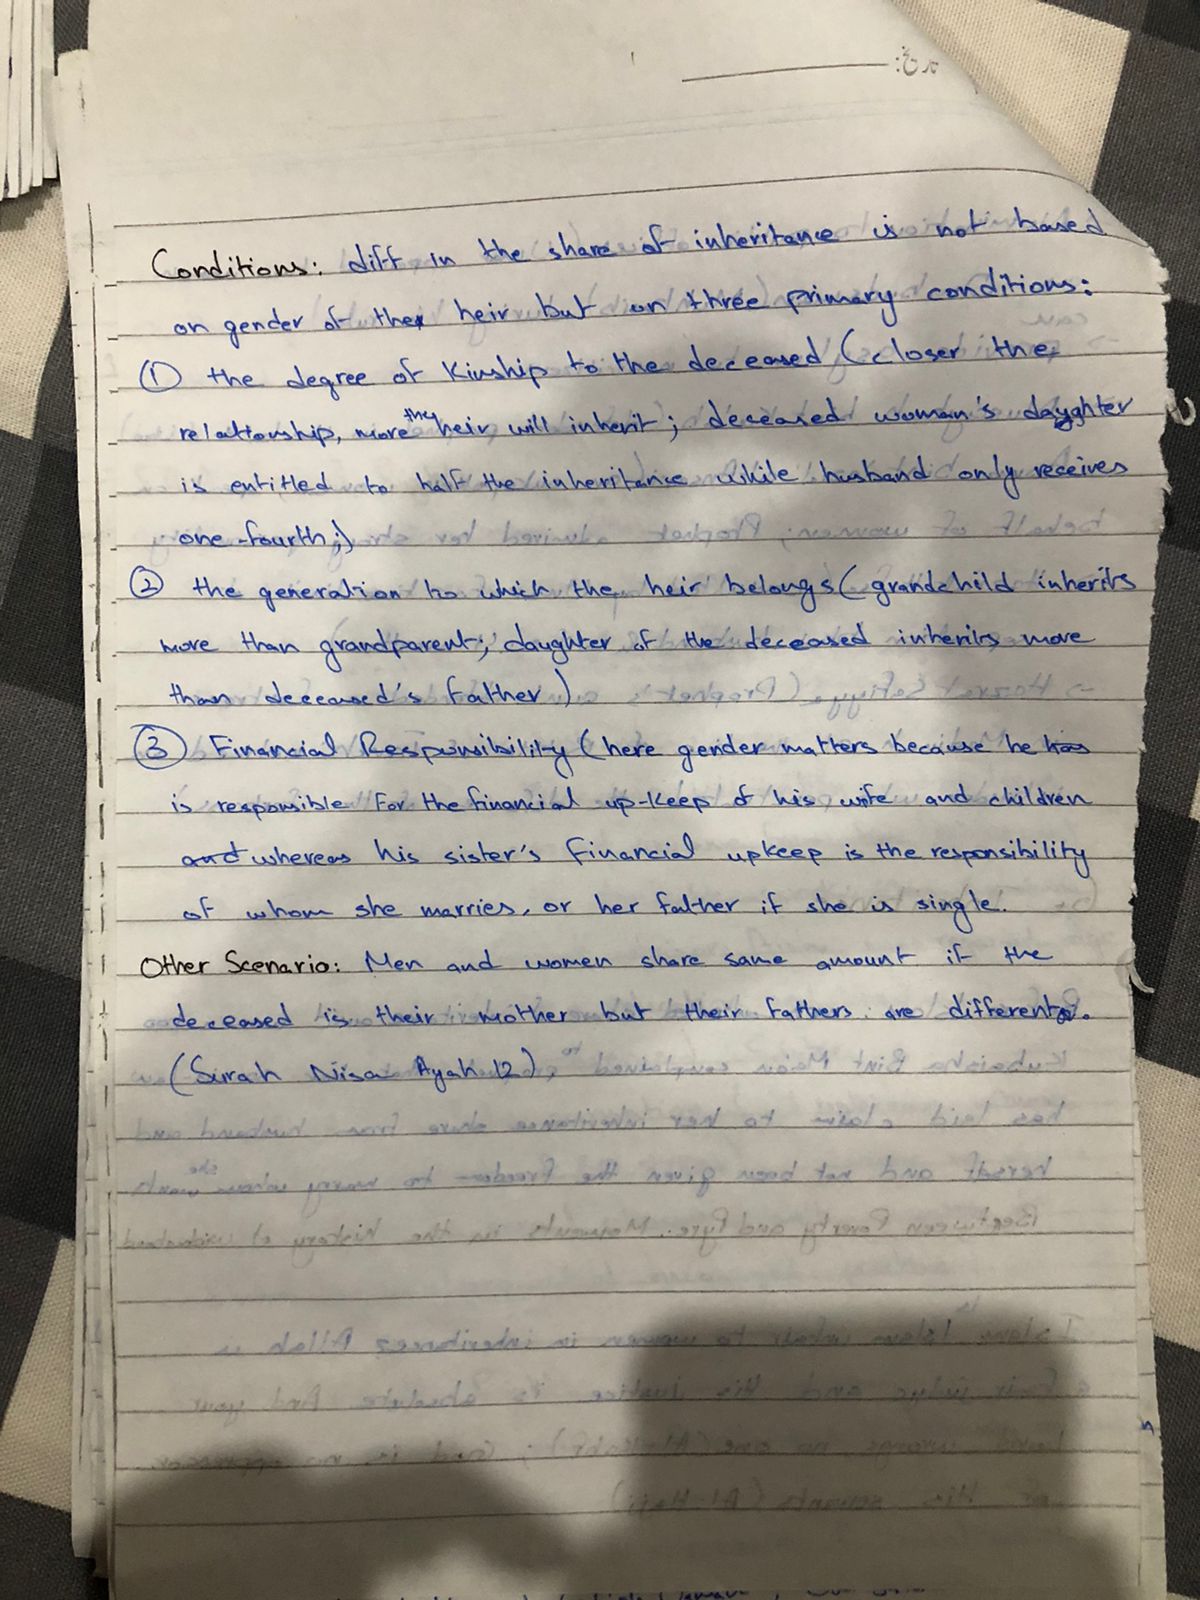 Conditions: diff in the share of inheritance is not based
on gender of the heir but on three primary conditions:
① the degree of kinship to the deceased (closer the
relationship, more the heir will inherit; deceased woman's daughter
is entitled to half the inheritance while husband only receives
one-fourth;)
② the generation to which the heir belongs (grandchild inherits
more than grandparent; daughter of the deceased inherits more
than deceased's father)
③ Financial Responsibility (here gender matters because he has
is responsible for the financial up-keep of his wife and children
and whereas his sister's financial upkeep is the responsibility
of whom she marries, or her father if she is single.
Other Scenario: Men and women share same amount if the
deceased is their mother but their fathers are different.
(Surah Nisa Ayah 12)